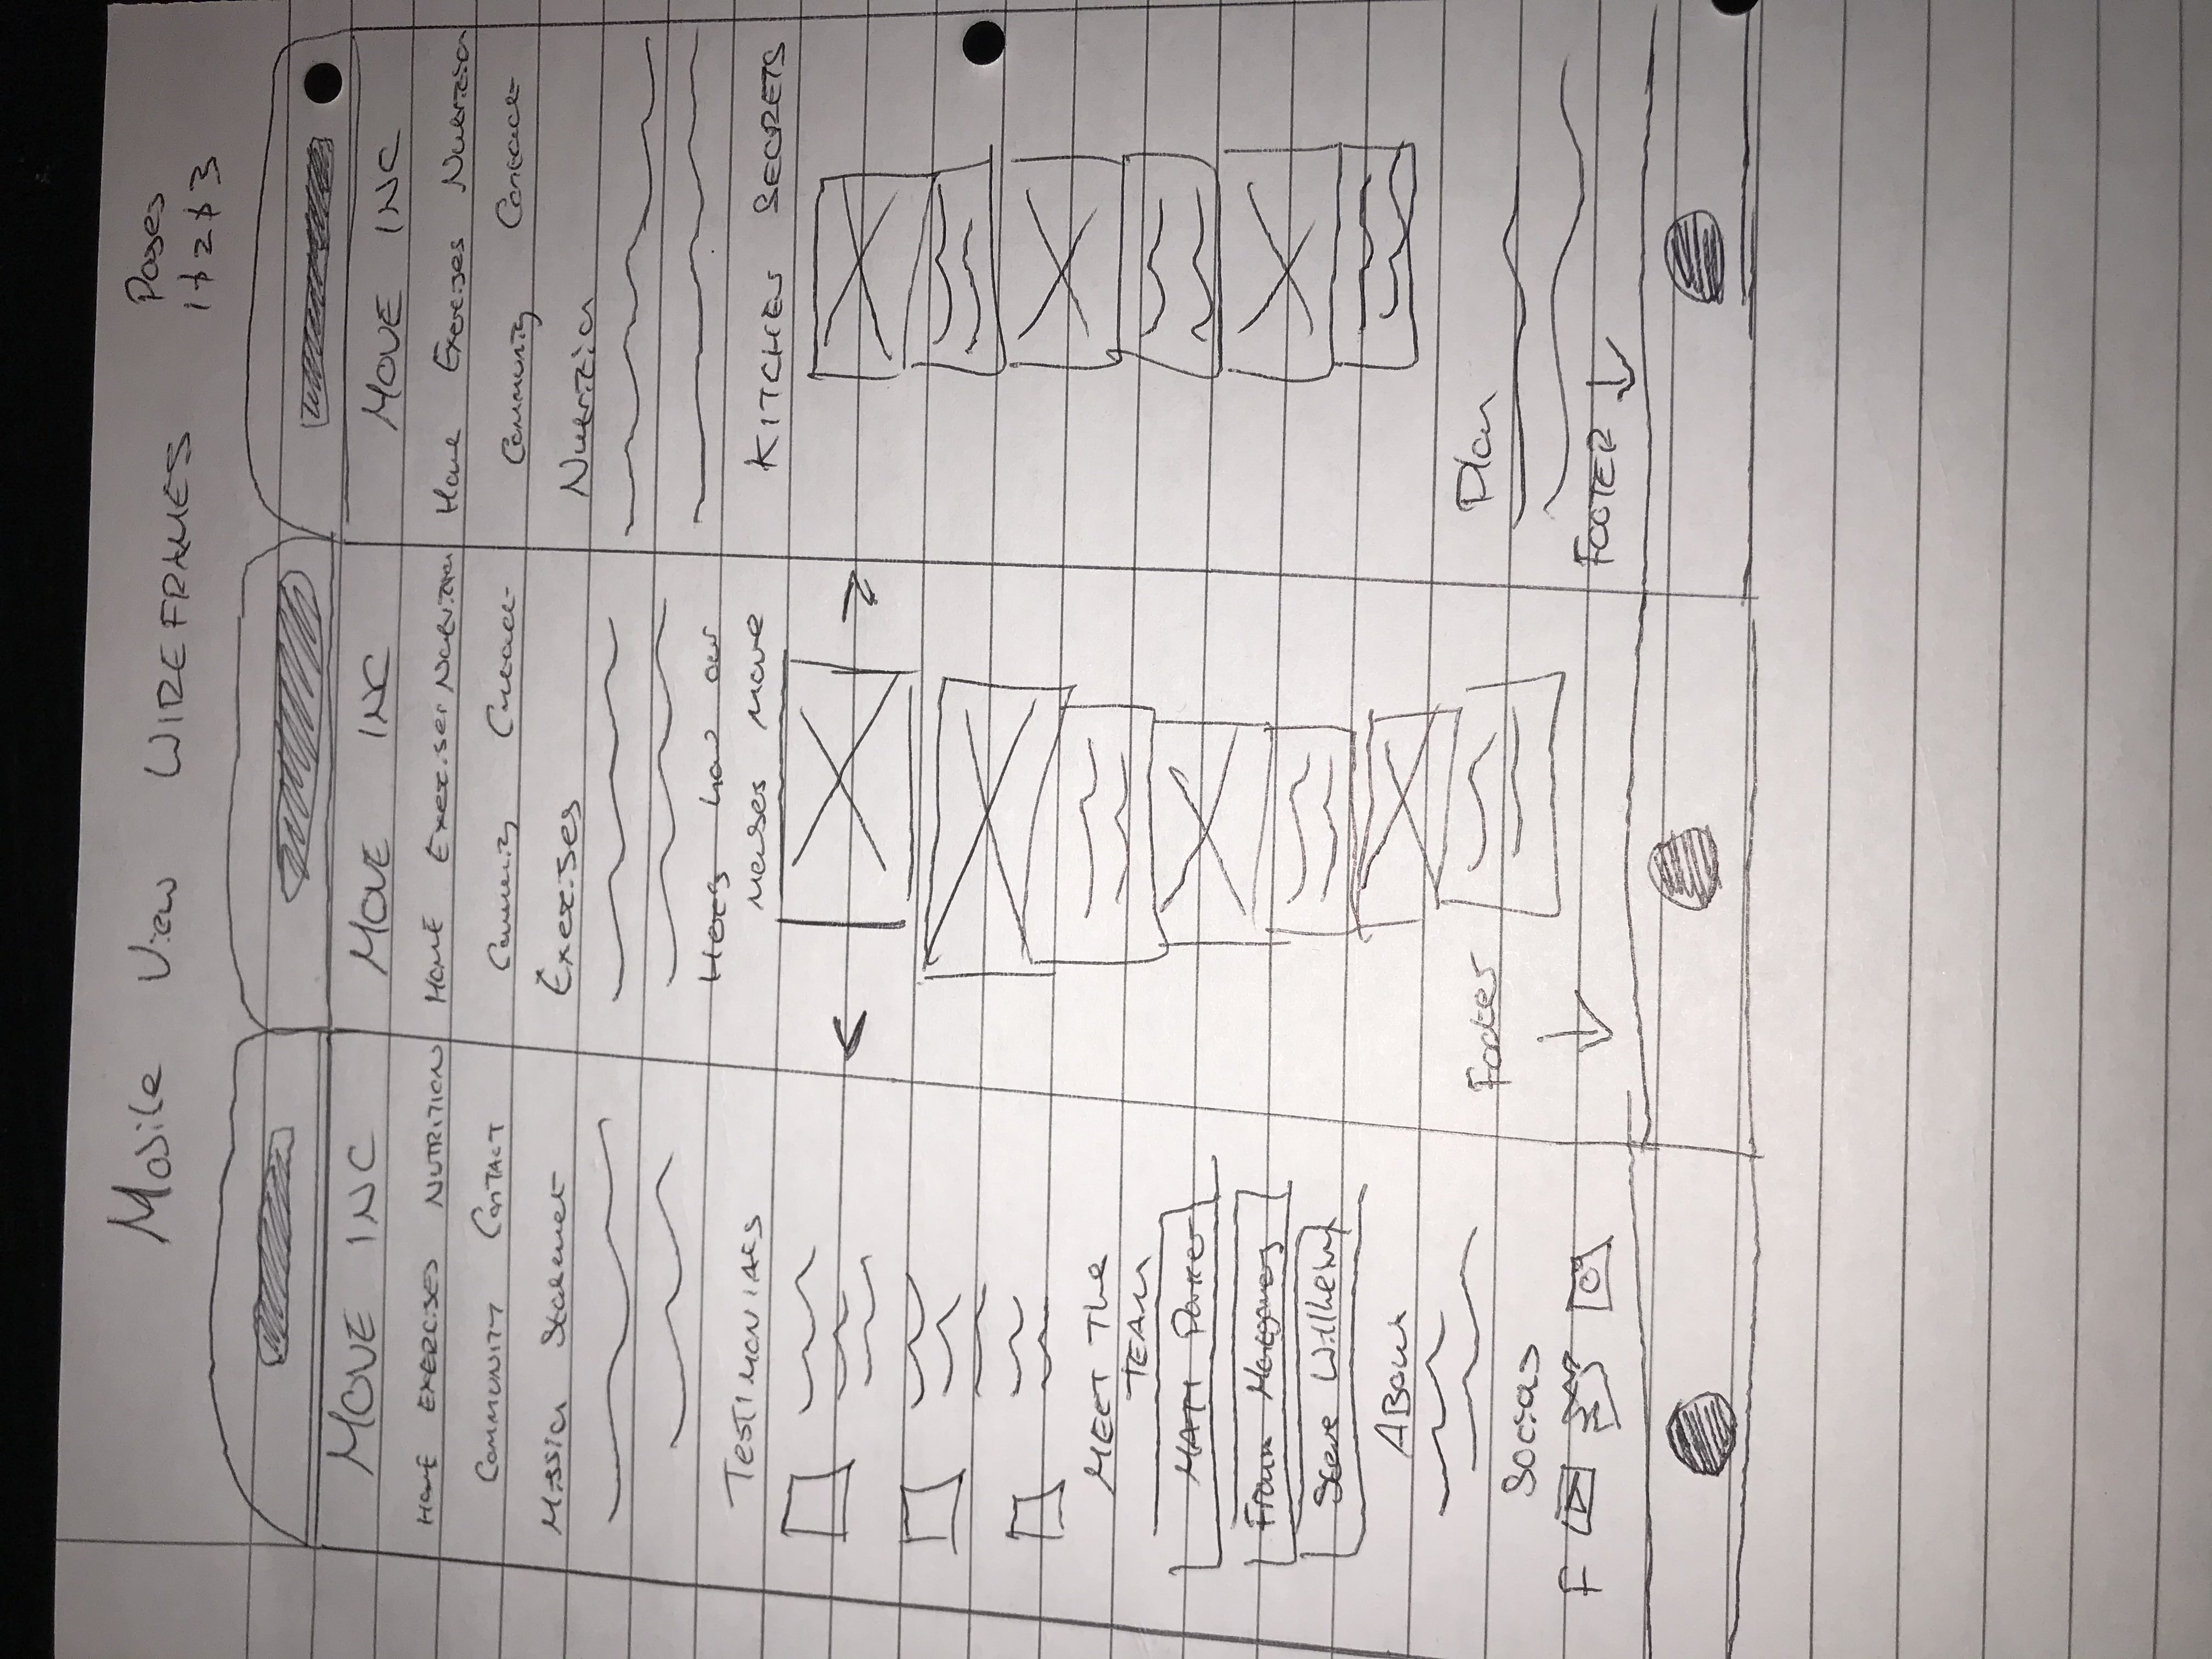 Mobile View WIREFRAMES
Pages
1 & 2 & 3
MOVE INC
HOME EXERCISES NUTRITION
COMMUNITY CONTACT
Mission Statement
TESTIMONIALS
MEET The
TEAM
MATT Parker
Steve Willhelm
ABout
Socials
F
MOVE INC
HOME Exercises Nutrition
Community Contact
Exercises
how our
move
Footer
MOVE INC
Home Exercises Nutrition
Community Contact
Nutrition
KITCHEN SECRETS
Plan
FOOTER